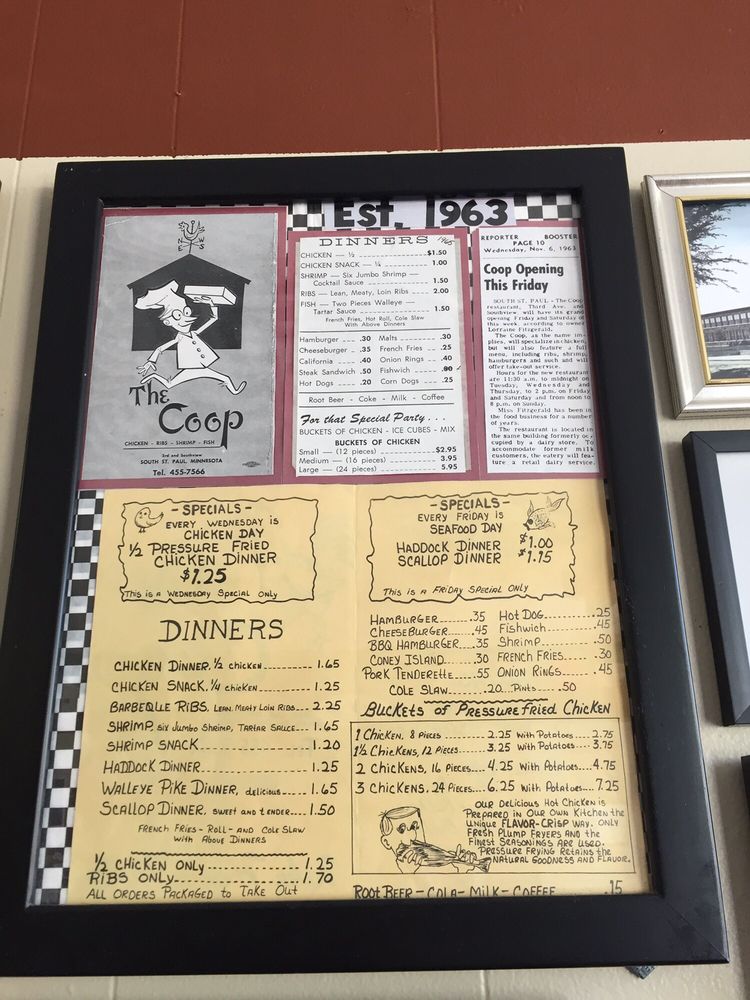 Est. 1963
N
E
W
S
The
Coop
CHICKEN - RIBS - SHRIMP - FISH
3rd and Southview
SOUTH ST. PAUL, MINNESOTA
Tel. 455-7566
DINNERS 1965
CHICKEN — ½ $1.50
CHICKEN SNACK — ¼ 1.00
SHRIMP — Six Jumbo Shrimp —
Cocktail Sauce 1.50
RIBS — Lean, Meaty, Loin Ribs 2.00
FISH — Two Pieces Walleye —
Tartar Sauce 1.50
French Fries, Hot Roll, Cole Slaw
With Above Dinners
Hamburger .30 Malts .30
Cheeseburger .35 French Fries .25
California .40 Onion Rings .40
Steak Sandwich .50 Fishwich
Hot Dogs .20 Corn Dogs .25
Root Beer - Coke - Milk - Coffee
For that Special Party . . .
BUCKETS OF CHICKEN - ICE CUBES - MIX
BUCKETS OF CHICKEN
Small — (12 pieces) $2.95
Medium — (16 pieces) 3.95
Large — (24 pieces) 5.95
REPORTER BOOSTER
PAGE 10
Wednesday, Nov. 6, 1963
Coop Opening
This Friday
SOUTH ST. PAUL - The Coop
restaurant, Third Ave. and
Southview will have its grand
opening Friday and Saturday of
this week according to owner
Lorraine Fitzgerald.
The Coop, as the name im-
plies, will specialize in chicken,
but will also feature a full
menu, including ribs, shrimp,
hamburgers and such and will
offer take-out service.
Hours for the new restaurant
are 11:30 a.m. to midnight on
Tuesday, Wednesday and
Thursday, to 2 p.m. on Friday
and Saturday and from noon to
8 p.m. on Sunday.
Miss Fitzgerald has been in
the food business for a number
of years.
The restaurant is located in
the same building formerly oc-
cupied by a dairy store. To
accommodate former milk
customers, the eatery will fea-
ture a retail dairy service.
- SPECIALS -
EVERY WEDNESDAY IS
CHICKEN DAY
½ PRESSURE FRIED
CHICKEN DINNER
$1.25
THIS IS A WEDNESDAY SPECIAL ONLY
- SPECIALS -
EVERY FRIDAY IS
SEAFOOD DAY
HADDOCK DINNER $1.00
SCALLOP DINNER $1.15
THIS IS A FRIDAY SPECIAL ONLY
DINNERS
CHICKEN DINNER, ½ CHICKEN 1.65
CHICKEN SNACK, ¼ CHICKEN 1.25
BARBEQUE RIBS, LEAN, MEATY LOIN RIBS 2.25
SHRIMP, SIX JUMBO SHRIMP, TARTAR SAUCE 1.65
SHRIMP SNACK 1.20
HADDOCK DINNER 1.25
WALLEYE PIKE DINNER, DELICIOUS 1.65
SCALLOP DINNER, SWEET AND TENDER 1.50
FRENCH FRIES - ROLL - AND COLE SLAW
WITH ABOVE DINNERS
½ CHICKEN ONLY 1.25
RIBS ONLY 1.70
ALL ORDERS PACKAGED TO TAKE OUT
HAMBURGER .35 HOT DOG .25
CHEESEBURGER .45 FISHWICH .45
BBQ HAMBURGER .35 SHRIMP .50
CONEY ISLAND .30 FRENCH FRIES .30
PORK TENDERETTE .55 ONION RINGS .45
COLE SLAW .20 PINTS .50
BUCKETS OF PRESSURE FRIED CHICKEN
1 CHICKEN, 8 PIECES 2.25 WITH POTATOES 2.75
1½ CHICKENS, 12 PIECES 3.25 WITH POTATOES 3.75
2 CHICKENS, 16 PIECES 4.25 WITH POTATOES 4.75
3 CHICKENS, 24 PIECES 6.25 WITH POTATOES 7.25
OUR DELICIOUS HOT CHICKEN IS
PREPARED IN OUR OWN KITCHEN THE
UNIQUE FLAVOR-CRISP WAY. ONLY
FRESH PLUMP FRYERS AND THE
FINEST SEASONINGS ARE USED.
PRESSURE FRYING RETAINS THE
NATURAL GOODNESS AND FLAVOR.
ROOT BEER - COLA - MILK - COFFEE .15